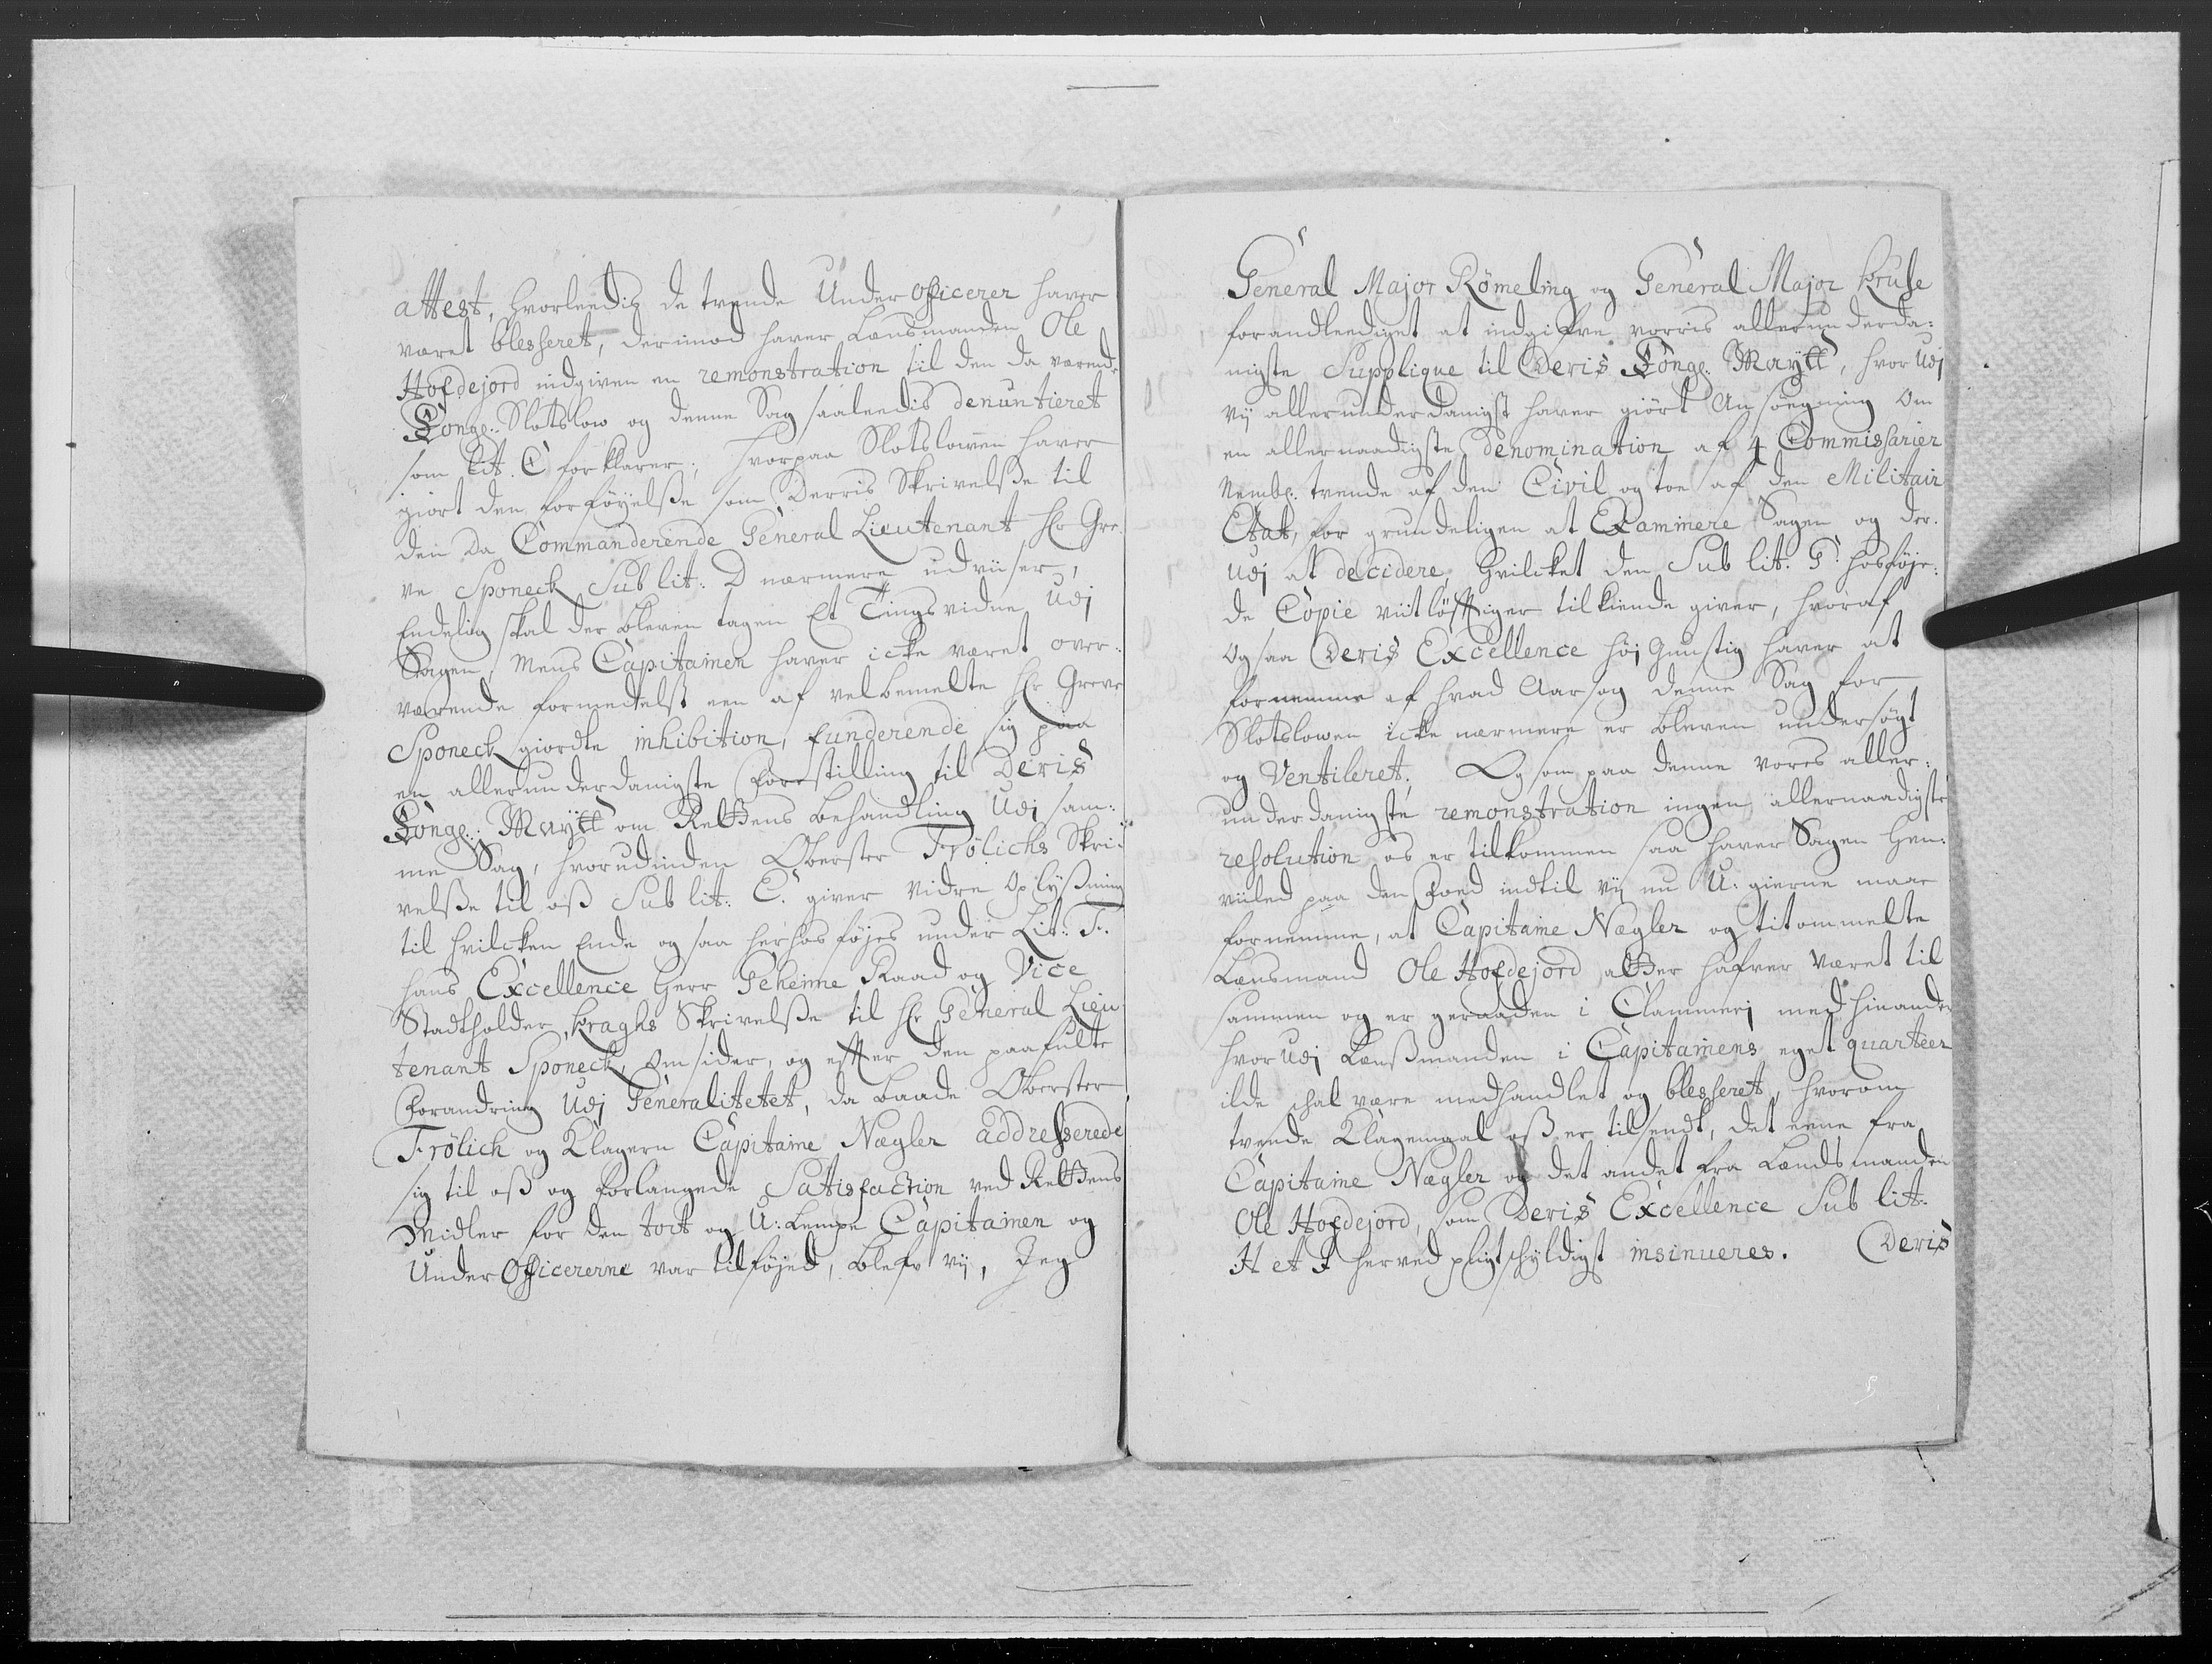 attest, hvorleedis de trende Under officerer haver
været blesseret, derimod haver Lænsmanden Ole
Hofdejord indgiven en remonstration til den da værende
Konge: Slotslow og denne Sag saaleedis denuntieret
som Lit. C forklarer; hvorpaa Slotslowen haver
giort den forføyelsse som Derris Skrivelsse til
den da Commanderende General Lieutenant Hr Gre
ve Sponeck Sub lit: D nærmere udviiser,
Endelig skal der bleven tagen Et Tingsvidne Udj
Sagen, Mens Capitainen haver icke været over-
værende formedelst een af velbemelte Hr Greve
Sponeck giordte inhibition, funderende sig paa
en allerunderdanigste Forestilling til Deris
Konge: Maytt om Rettens behandling Udj sam-
me Sag, hvorudinden Oberster Frölichs Skri-
velsse til oss Sub lit: E. giver vidre Oplyssning
til hvilcken Ende og saa herhos føjes under Lit: F.
hans Excellence Herr Geheime Raad og Vice
Stadtholder Kraghs Skrivelsse til Hr General Lieu
tenant Sponeck, omsider, og effter den paafulte
Forandring Udj Generalitetet, da baade Oberster
Frölich og Klagern Capitaine Nægler addresserede
sig til oss og forlangede Satisfaction ved Rettens
Midler for den tort og U:lempe Capitainen og
Under Officererne var tilføjed, blefv vij, Jeg
General Major Römeling og General Major Kruse
forandleediget at indgifve vorris allerunderda-
nigste Supplique til Deris Konge: Maytt, hvor Udj
vij allerunderdanigst haver giört Ansöegning om
en allernaadigste denomination af 4 Commissarier
Nembl: trende af den Civil og toe af den Militair
Etat, for grundeligen at Examinere Sagen og der-
udj at decidere, Hvilcket den Sub lit. G. hosføje-
de Copie viitlöfftiger tilkiende giver, hvoraf
og saa Deris Excellence höj Gunstig haver at
fornemme af hvad Aarsag denne Sag for
Slotslowen icke nærmere er bleven undersögt
og Ventileret; Og som paa denne vores aller-
underdanigste remonstration ingen allernaadigste
resolution os er tilkommen saa haver Sagen Hen-
viiled paa den Foed indtil vij nu U:gierne maae
fornemme, at Capitaine Nægler og titommelte
Lænsmand Ole Hofdejord atter hafver været til
sammen og er geraaden i Clammerj med hinanden
hvor udj Lænssmanden i Capitainens eget quarteer
ilde skal være medhandlet og blesseret, hvorom
tvende Klagemaal oss er tilsendt, det eene fra
Capitaine Nægler og det andet fra Lændsmanden
Ole Hofdejord, som Deris Excellence Sub lit.
H et I herved pligtschyldigst insinueres. Deris